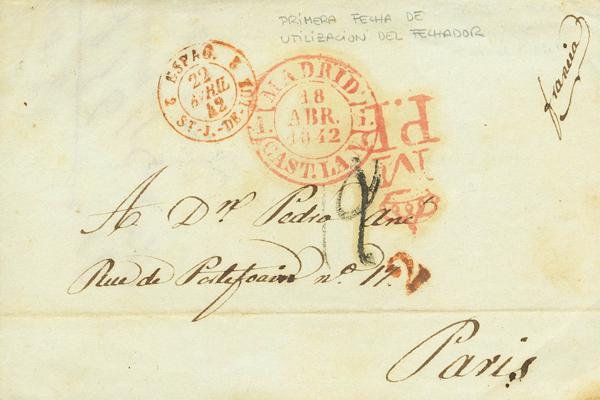 PRIMERA FECHA DE
UTILIZACION DEL FECHADOR
francia
2 ESPAG. 8
22
AVRIL
42
ST-J.-DE-LUZ
MADRID
18
ABR.
1842
CAST.LA N.
A Dn Pedro
Rue de Portefoain nº 17.
Paris